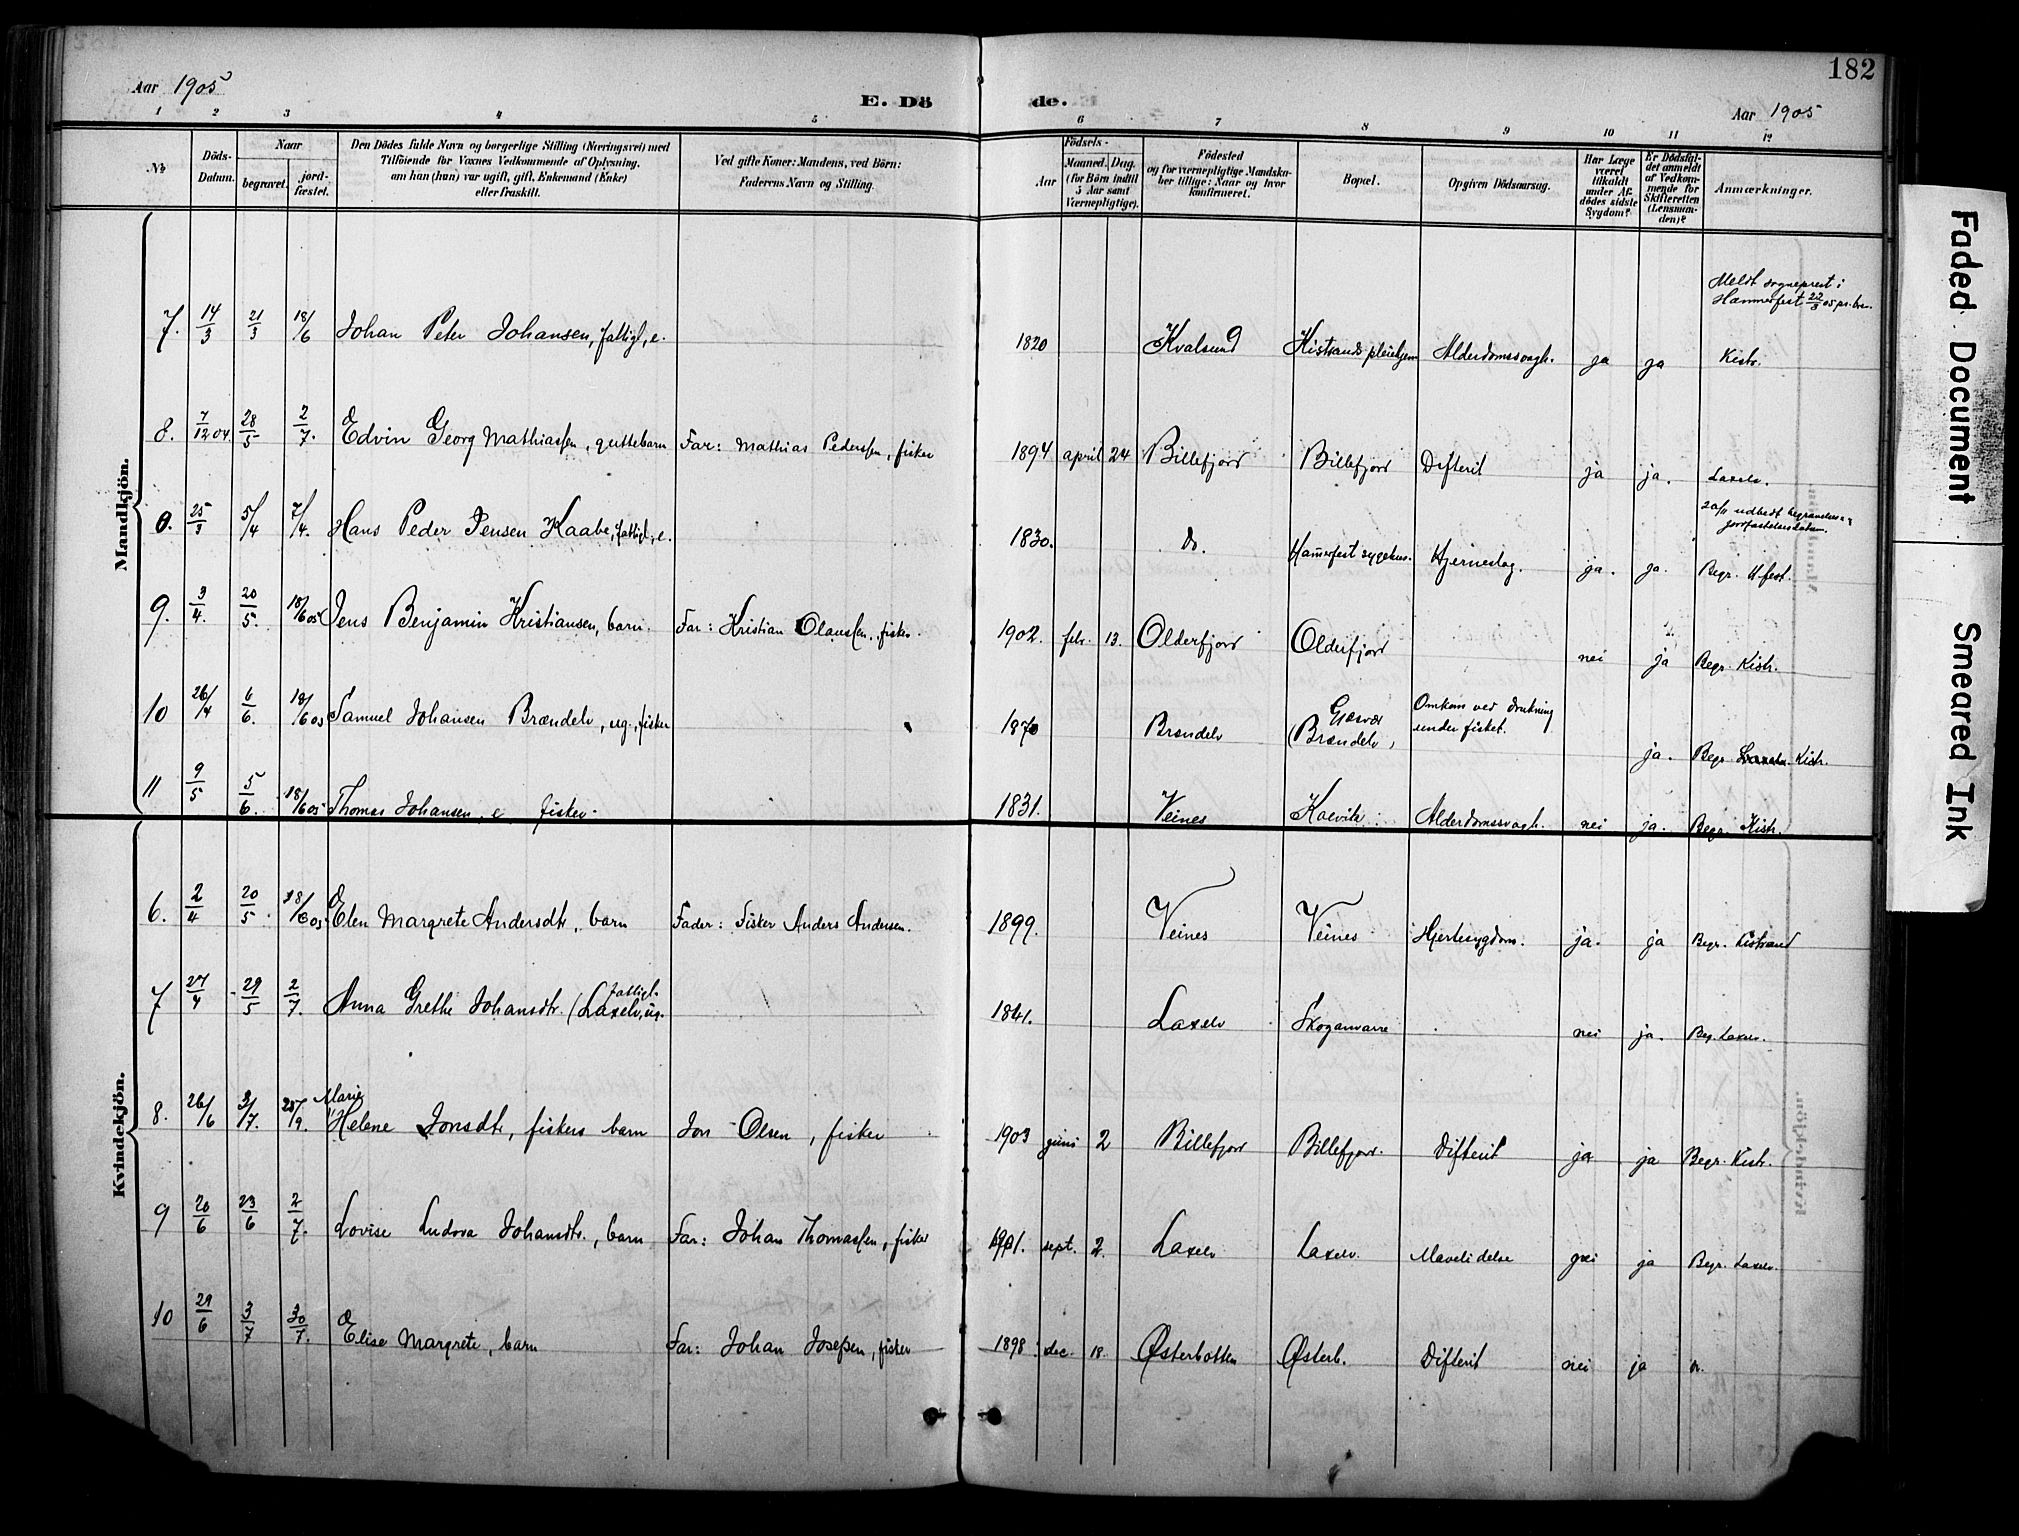 182
Aar 1905
E. Dö
de.
Aar 1905
1 2 3 4 5 6 7 8 9 10 11 12
No.
Döds-Datum.
Naar
begravet.
jord-fæstet.
Den Dödes fulde Navn og borgerlige Stilling (Næringsvei) med
Tilföiende for Voxnes Vedkommende af Oplysning,
om han (hun) var ugift, gift, Enkemand (Enke)
eller fraskilt.
Ved gifte Koner: Mandens, ved Börn:
Faderens Navn og Stilling.
Födsels-
Aar
Maaned. Dag.
(for Börn indtil
5 Aar samt
Værnepligtige).
Födested
og for værnepligtige Mandska-
ber tillige: Naar og hvor
konfirmeret.
Bopæl.
Opgiven Dödsaarsag.
Har Læge
været
tilkaldt
under Af-
dødes sidste
Sygdom?
Er Dödsfal-
det anmeldt
af Vedkom-
mende for
Skifteretten
(Lensman-
den)?
Anmærkninger.
Mandkjön.
Meldt sogneprest i
Hammerfest 22/3 05 pr. brev.
7. 14/3 21/3 18/6 Johan Peter Johansen, fattigl., e. 1820 Kvalsund Kistrands pleiehjem Alderdomssvagh. ja ja Kistr.
8. 7/12 04. 28/5 2/7. Edvin Georg Mathiassen, guttebarn Far: Mathias Pederssen, fisker 1894 april 24 Billefjord Billefjord Difterit ja ja. Laxelv.
8. 25/3 5/4 7/4. Hans Peder Jensen Kaabe, fattigl., e. 1830. Do. Hamerfest sygehus. Hjerneslag. ja. ja. Begr. H.fest.
9. 3/4. 20/5. 18/6 05 Jens Benjamin Kristiansen, barn. Far: Kristian Olaussen, fisker. 1902. febr. 13. Olderfjord Olderfjord nei ja Begr. Kistr.
10 26/4 6/6. 18/6 05 Samuel Johansen Brændelv, ug., fisker 1870 Brændelv Gjesvær (Brændelv) Omkom ved drukning under fisket. ja. Begr. Kistr.
11 9/5 5/6. 18/6 05 Thomas Johansen, e fisker. 1831. Veines Kaevik Alderdomssvagh. nei ja. Begr. Kistr.
Kvindekjön.
6. 2/4 20/5. 18/6 05. Elen Margrete Andersdtr., barn Fader: Fisker Anders Andersen. 1899. Veines Veines Hjertesygdom. ja. ja Begr. Kistrand
7 27/4 29/5 2/7. Anna Grethe Johansdtr. (Laxelv, ug. fattigl. 1841. Laxelv Skoganvarre nei ja. Beg. Laxelv.
8. 26/6 3/7. 25/9. Marie Helene Jonsdtr, fiskers barn Jon Olsen, fisker 1903 juni 2 Billefjord Billefjord. Difterit ja ja Begr. Kistr.
9 20/6 23/6 2/7. Lovise Ludova Johansdtr., barn Far: Johan Thomassen, fisker 1901. sept. 2. Laxelv Laxelv. Mavelidelse nei ja Begr. Laxelv.
10 29/6 3/7 30/7. Elise Margrete, barn Far: Johan Josefsen, fisker 1898 dec. 18 Østerbotten Østerb. Difterit nei ja
Faded Document
Smeared Ink